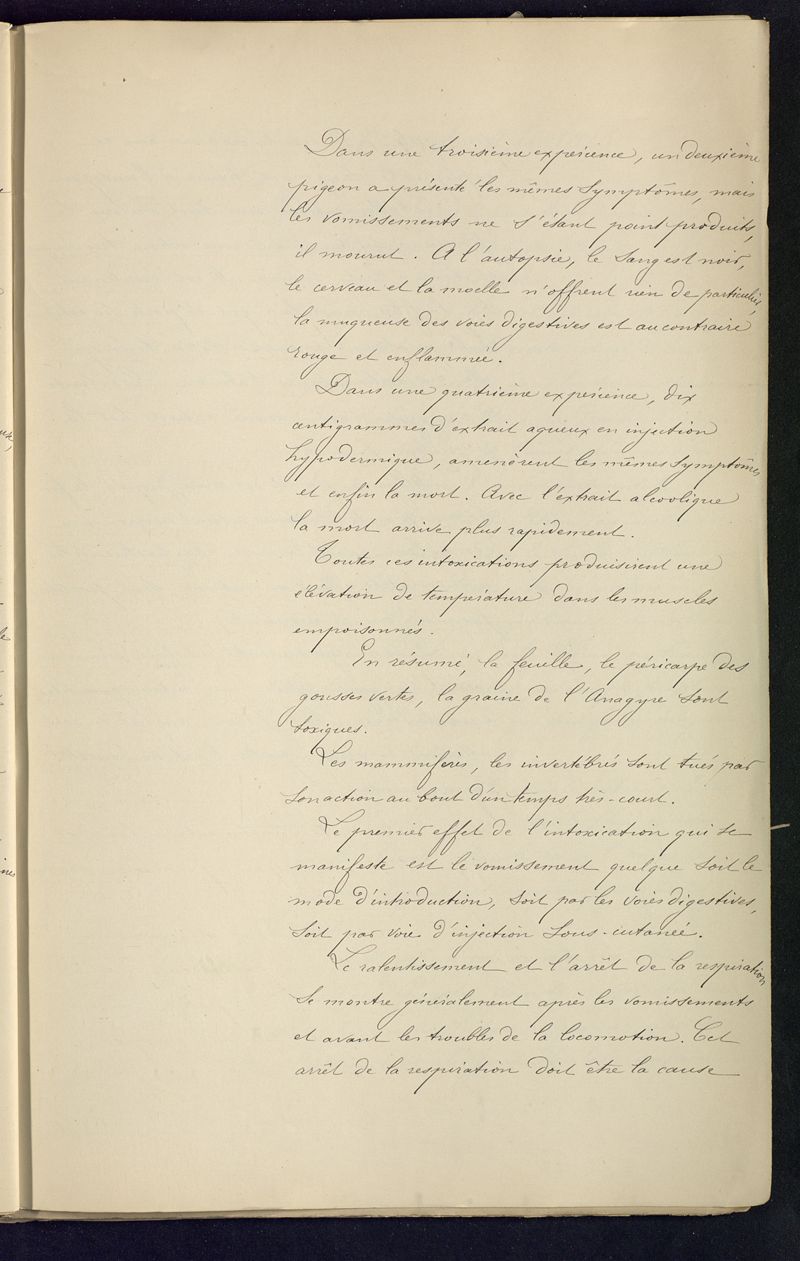 Dans une troisième expérience, un deuxième
pigeon a présenté les mêmes symptômes, mais
les vomissements ne s'étant point produits,
il mourut. A l'autopsie, le sang est noir,
le cerveau et la moelle n'offrent rien de particulier,
la muqueuse des voies digestives est au contraire
rouge et enflammée.
Dans une quatrième expérience, dix
centigrammes d'extrait aqueux en injection
hypodermique, amenèrent les mêmes symptômes
et enfin la mort. Avec l'extrait alcoolique
la mort arrive plus rapidement.
Toutes ces intoxications produisirent une
élévation de température dans les muscles
empoisonnés.
En résumé, la feuille, le péricarpe des
gousses vertes, la graine de l'Anagyre sont
toxiques.
Les mammifères, les invertébrés sont tués par
son action au bout d'un temps très-court.
Le premier effet de l'intoxication qui se
manifeste est le vomissement quelque soit le
mode d'introduction, soit par les voies digestives,
soit par voie d'injection sous-cutanée.
Le ralentissement et l'arrêt de la respiration
se montre généralement après les vomissements
et avant les troubles de la locomotion. Cet
arrêt de la respiration doit être la cause